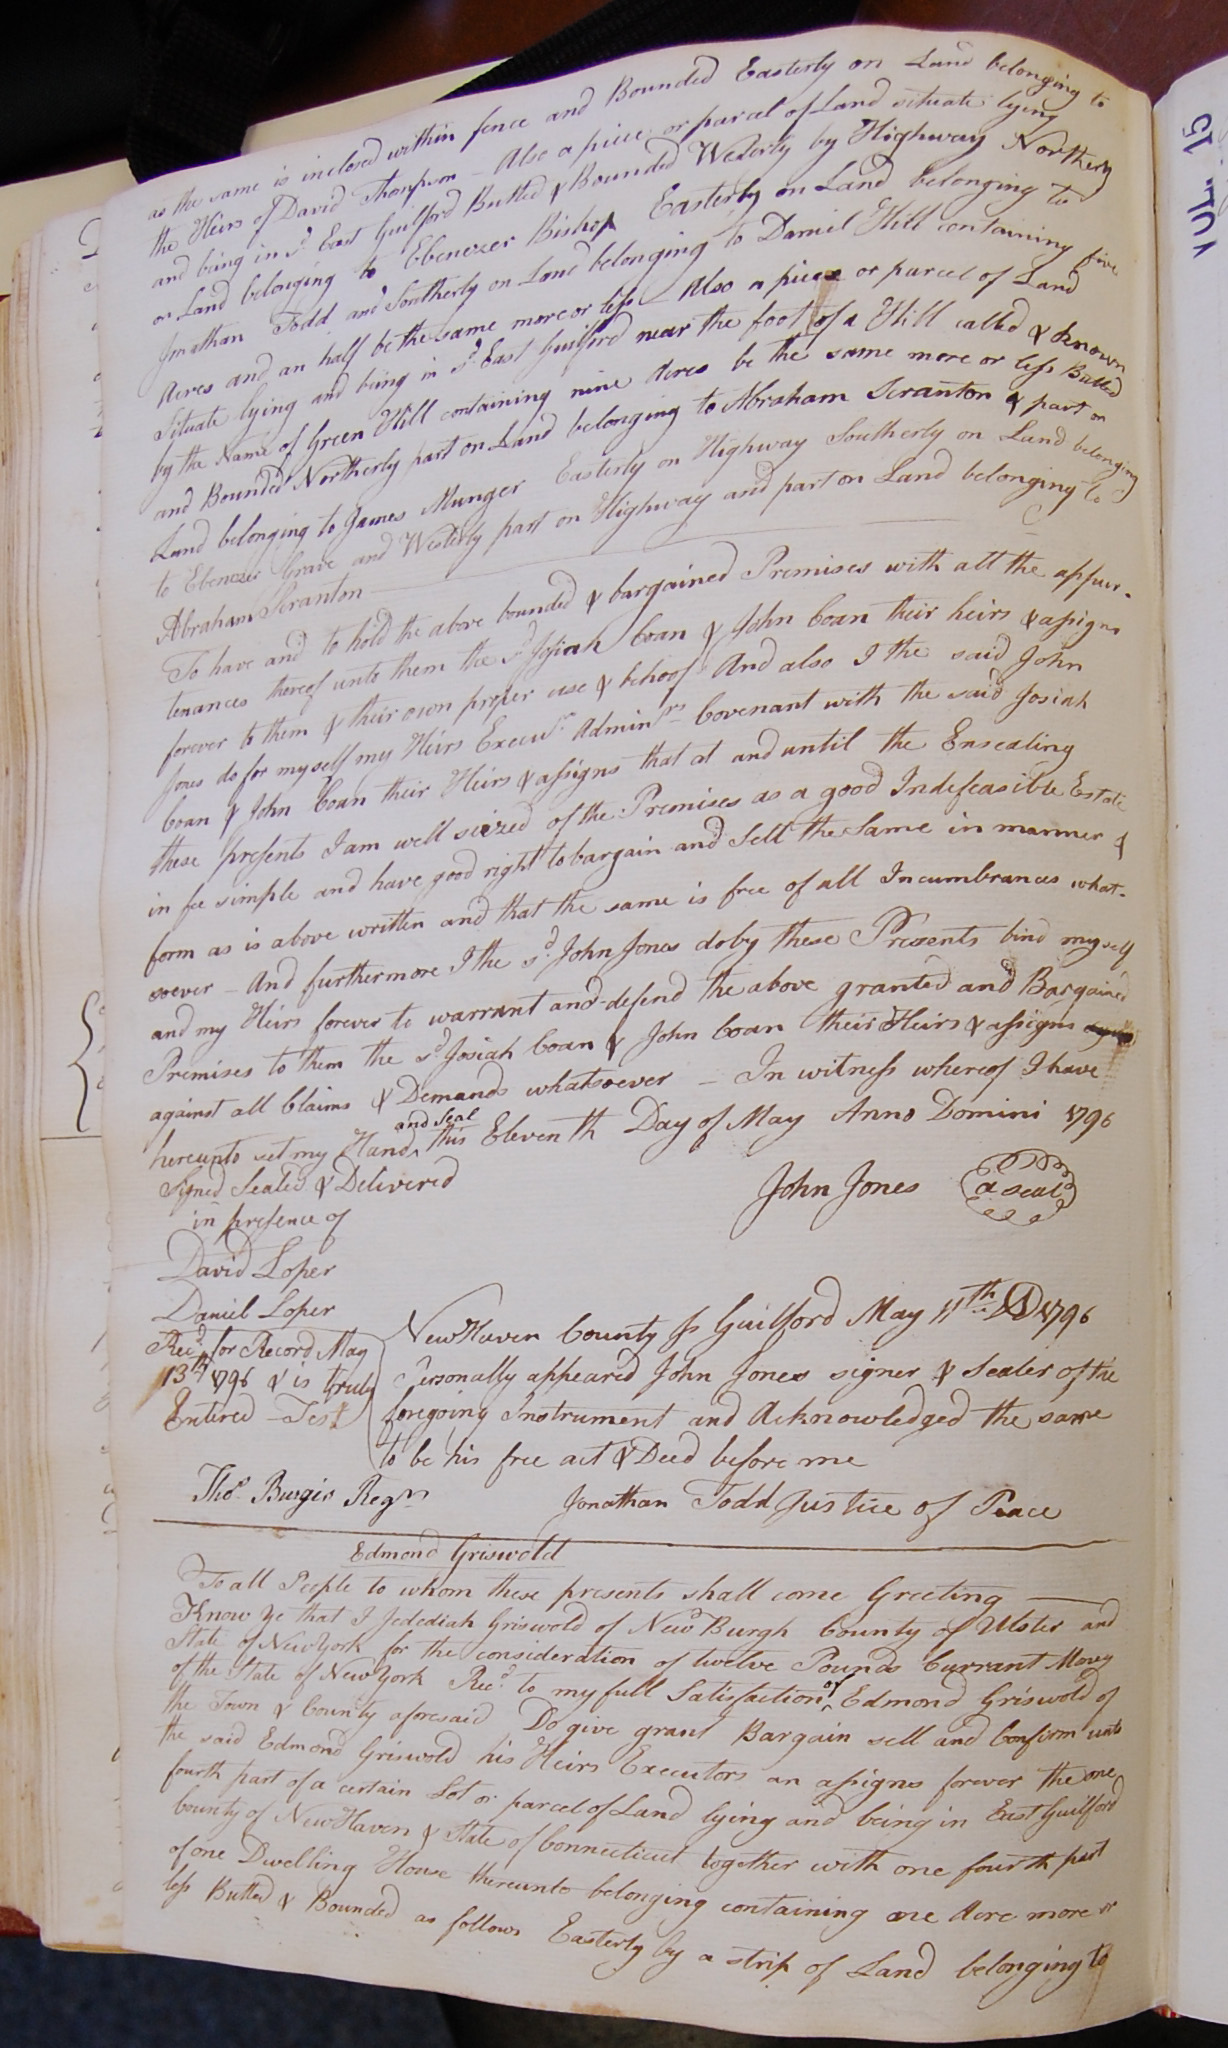 as the same is inclosed within fence and Bounded Easterly on Land belonging to
the Heirs of David Thompson - Also a piece or parcel of Land situate lying
and being in sd East Guilford Butted & Bounded Westerly by Highway Northerly
on Land belonging to Ebenezer Bishop Easterly on Land belonging to
Jonathan Todd and Southerly on Land belonging to Daniel Hill containing five
Acres and an half be the same more or less - Also a piece or parcel of Land
Situate lying and being in sd East Guilford near the foot of a Hill called & known
by the Name of Green Hill containing nine Acres be the same more or less Butted
and Bounded Northerly part on Land belonging to Abraham Scranton & part on
Land belonging to James Munger Easterly on Highway Southerly on Land belonging
to Ebenezer Grave and Westerly part on Highway and part on Land belonging to
Abraham Scranton
To have and to hold the above bounded & bargained Premises with all the appur-
tenances thereof unto them the sd Josiah Coan & John Coan their heirs & assigns
forever to them & their own proper use & behoof And also I the said John
Jones do for myself my Heirs Execurs Adminrs Covenant with the said Josiah
Coan & John Coan their Heirs & assigns that at and until the Ensealing
these presents I am well seized of the Premises as a good Indefeasible Estate
in fee simple and have good right to bargain and Sell the Same in manner &
form as is above written and that the same is free of all Incumbrances what-
soever - And furthermore I the sd John Jones do by these Presents bind myself
and my Heirs forever to warrant and defend the above granted and Bargained
Premises to them the sd Josiah Coan & John Coan their Heirs & assigns
against all Claims & Demands whatsoever - In witness whereof I have
hereunto set my Hand ^and Seal this Eleventh Day of May Anno Domini 1796
Signed Sealed & Delivered
in presence of
John Jones a seal
David Loper
Daniel Loper
Recd for Record May
13th 1796 & is truly
Entered - Test
Thos Burgis Regr
New Haven County ss Guilford May 11th AD 1796
Personally appeared John Jones signer & Sealer of the
foregoing Instrument and Acknowledged the same
to be his free act & Deed before me
Jonathan Todd Justice of Peace
Edmond Griswold
To all People to whom these presents shall come Greeting
Know Ye that I Jedediah Griswold of New Burgh County of Ulster and
State of New York for the consideration of twelve Pounds Currant Money
of the State of New York Recd to my full Satisfaction ^of Edmond Griswold of
the Town & County aforesaid Do give grant Bargain sell and Confirm unto
the said Edmond Griswold his Heirs Executors an assigns forever the one
fourth part of a certain Lot or parcel of Land lying and being in East Guilford
County of New Haven & State of Connecticut together with one fourth part
of one Dwelling House thereunto belonging containing one Acre more or
less Butted & Bounded as follows Easterly by a strip of Land belonging to